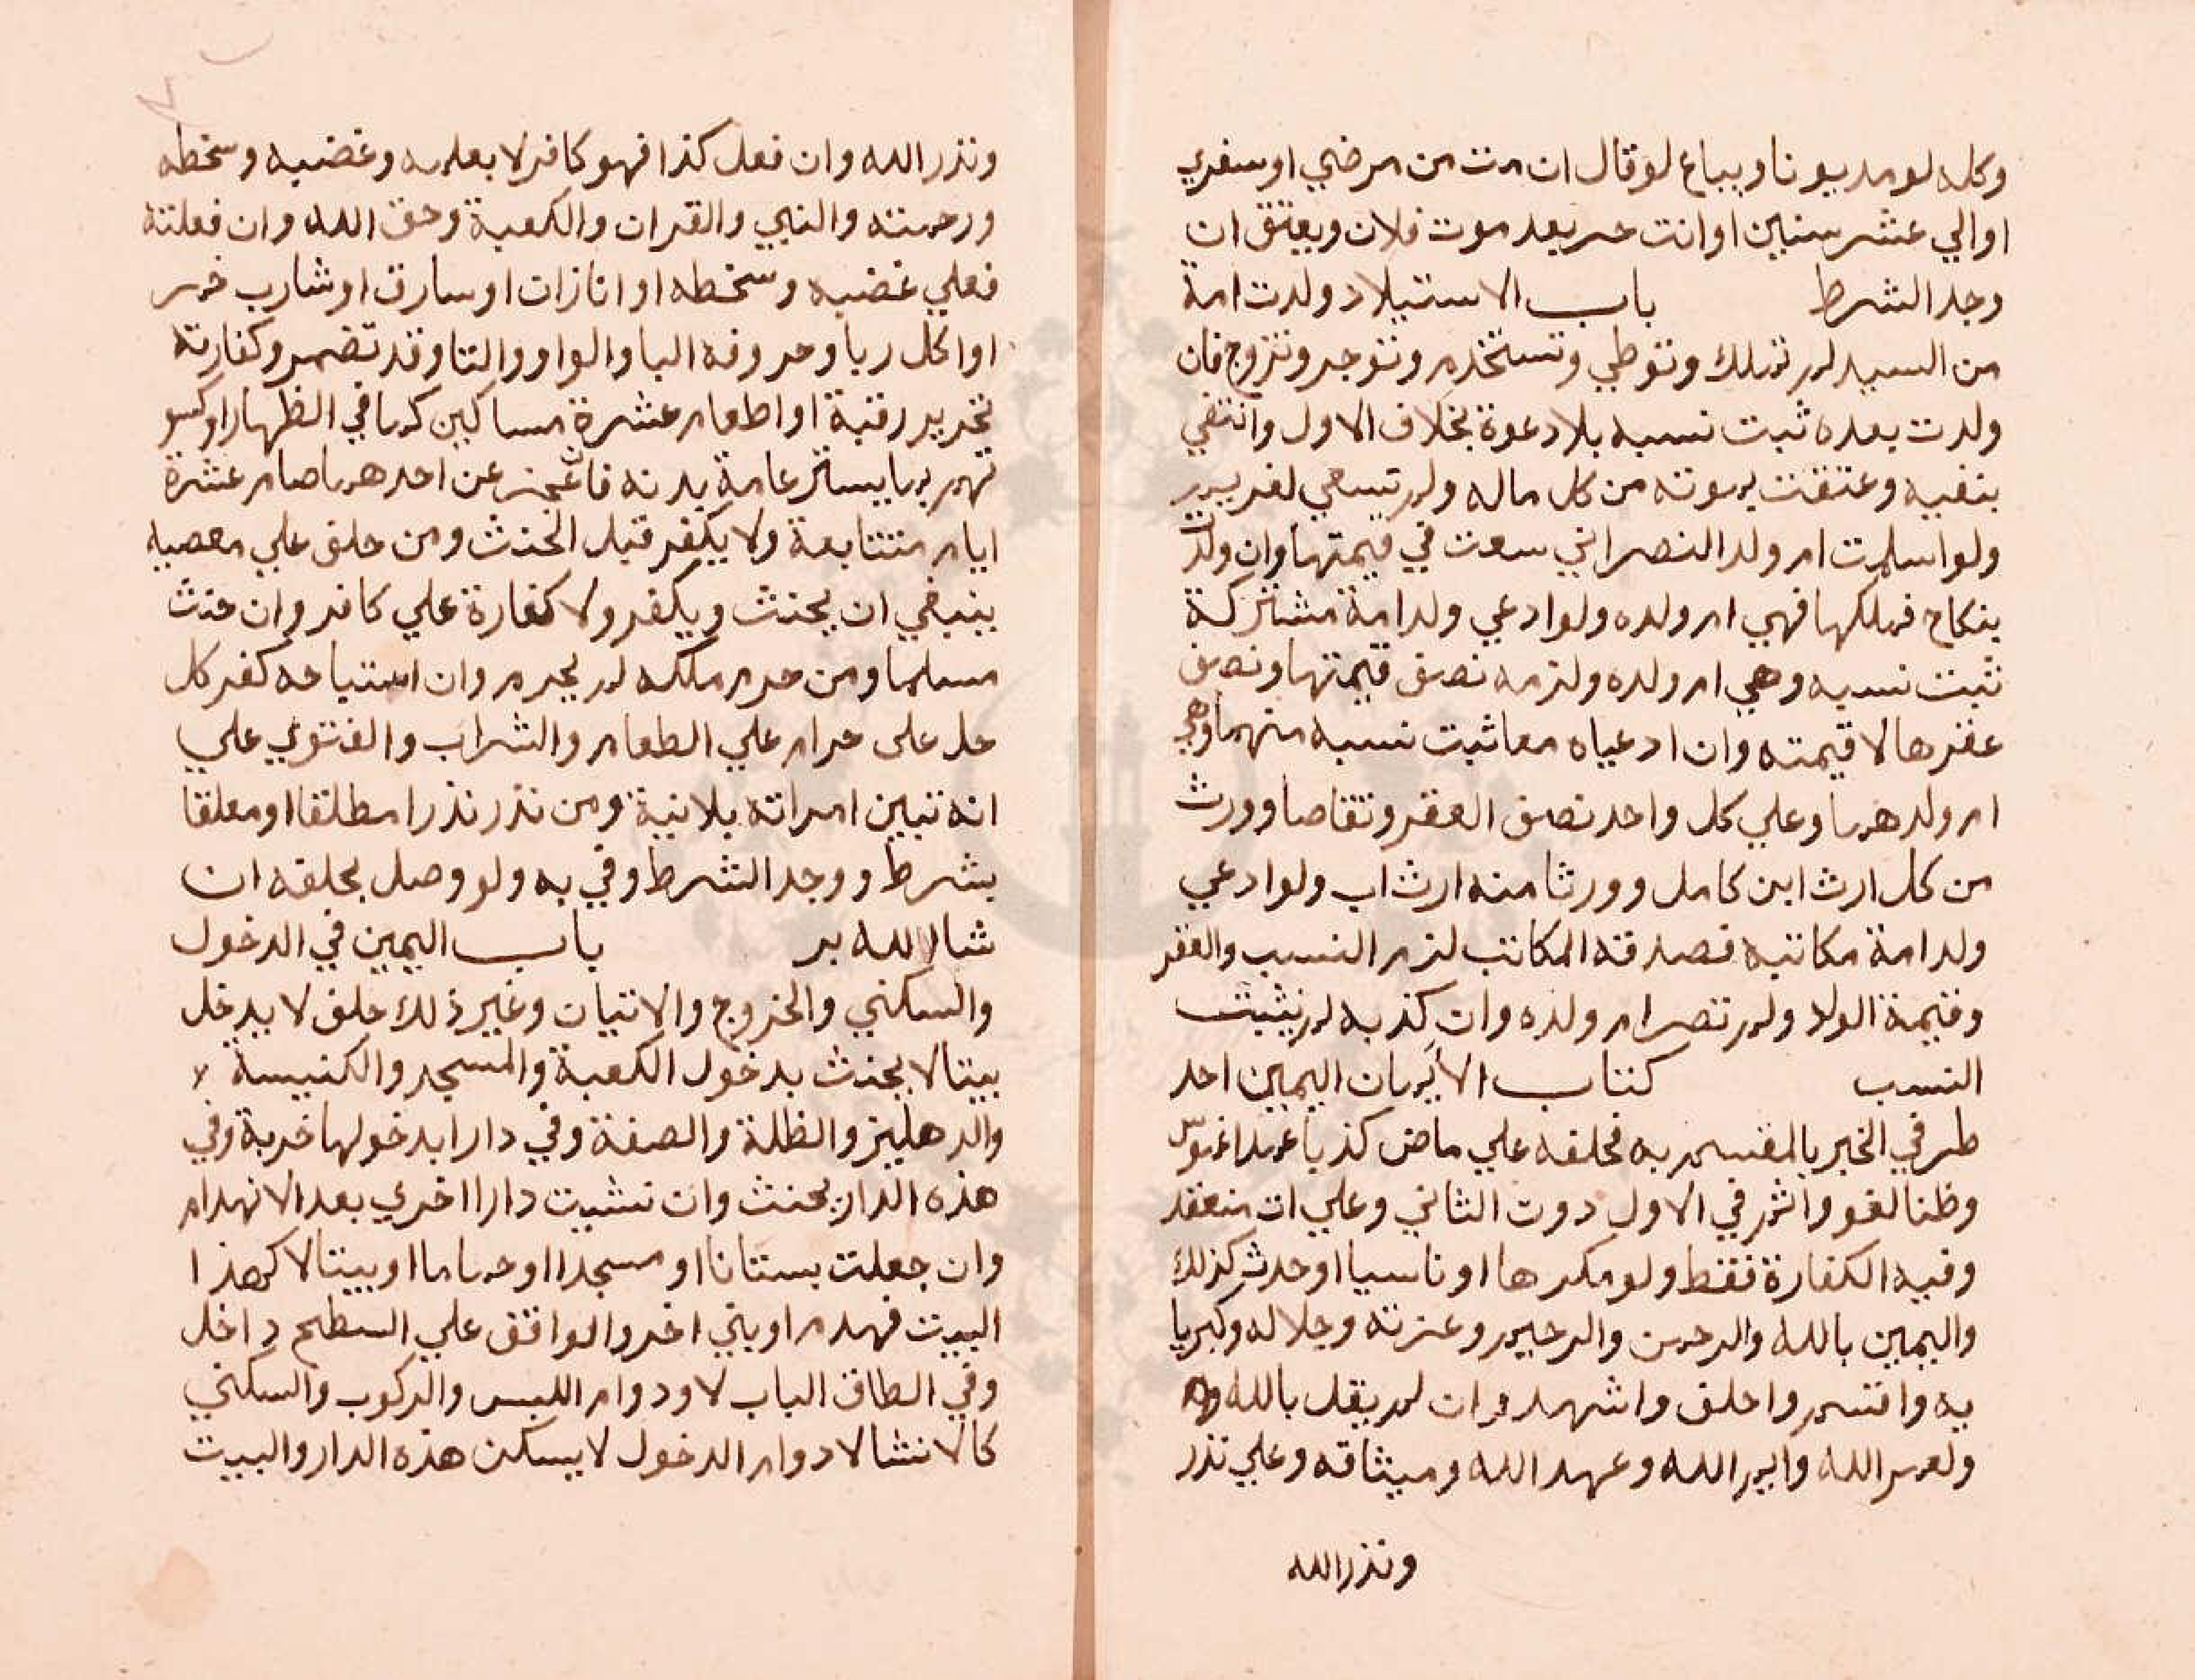 وكله لو مديونا ويباع لو قال ان مت من مرضي او سفري
او الي عشر سنين او انت حر بعد موت فلان ويعتق ان
وجد الشرط باب الاستيلاد ولدت امة
من السيد لم تملك وتوطي وتستخدم وتوجر وتزوج فان
ولدت بعده ثبت نسبه بلا دعوة بخلاف الاول وانتفي
بنفيه وعتقت بموته من كل ماله ولم تسعي لغريم
ولو اسلمت ام ولد النصراني سعت في قيمتها وان ولدت
بنكاح فملكها فهي ام ولده ولو ادعي ولد امة مشتركة
ثبت نسبه وهي ام ولده ولزمه نصف قيمتها ونصف
عقرها لا قيمته وان ادعياه معا ثبت نسبه منهما وهي
ام ولدهما وعلي كل واحد نصف العقر وتقاصا وورث
من كل ارث ابن كامل وورثا منه ارث اب ولو ادعي
ولد امة مكاتبه فصدقه المكاتب لزم النسب والعقر
وقيمة الولد ولم تصر ام ولده وان كذبه لم يثبت
النسب كتاب الأيمان اليمين احد
طرفي الخبر بالمقسم به فحلفه علي ماض كذبا عمدا غموس
وظنا لغو واثم في الاول دون الثاني وعلي ات منعقد
وفيه الكفارة فقط ولو مكرها او ناسيا او حدث كذلك
واليمين بالله والرحمن والرحيم وعزته وجلاله وكبريا
يه واقسم واحلف واشهد وان لم يقل بالله
ولعمر الله وايم الله وعهد الله وميثاقه وعلي نذر
ونذر الله
ونذر الله وان فعل كذا فهو كافر لا بعلمه وغضبه وسخطه
ورحمته والنبي والقران والكعبة وحق الله وان فعلته
فعلي غضبه وسخطه او انا زان او سارق او شارب خمر
او اكل ربا وحروفه البا والواو والتا وقد تضمر وكفارته
تحرير رقبة او اطعام عشرة مساكين كما في الظهار او كسو
تهم بما يستر عامة بدنه فان عجز عن احدهما صام عشرة
ايام متتابعة ولا يكفر قبل الحنث ومن حلف علي معصيه
ينبغي ان يحنث ويكفر ولا كفارة علي كافر وان حنث
مسلما ومن حرم ملكه لم يحرم وان استباحه كفر كل
حل على حرام علي الطعام والشراب والفتوي علي
انه تبين امراته بلا نية ومن نذر نذرا مطلقا او معلقا
بشرط ووجد الشرط وفي به ولو وصل بحلفه ان
شا الله بر باب اليمين في الدخول
والسكني والخروج والاتيان وغير ذلك حلف لا يدخل
بيتا لا يحنث بدخول الكعبة والمسجد والكنيسة
والدهليز والظلة والصفة وفي دارا بدخولها خربة وفي
هذه الدار يحنث وان نشيت دارا اخري بعد الانهدام
وان جعلت بستانا او مسجدا او حماما او بيتا لا كهذا
البيت فهدم او بني اخر والواقف علي السطح داخل
وفي الطاق الباب لا ودوام اللبس والركوب والسكني
كالانشا لا دوام الدخول لا يسكن هذه الدار والبيت